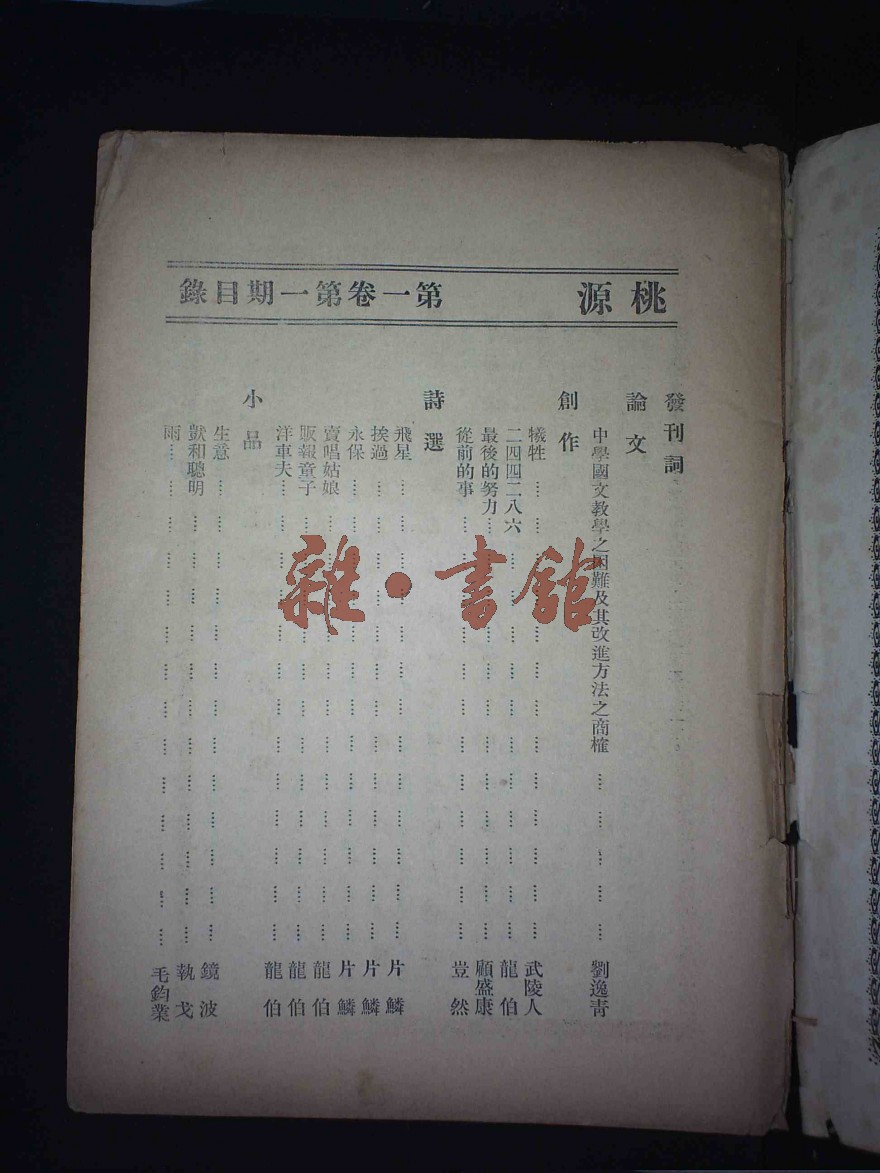 桃源 第一卷第一期目錄
發刊詞
論文
中學國文教學之困難及其改進方法之商榷 …… 劉逸青
創作
犧牲 …… 武陵人
二四四二八六 …… 龍伯
最後的努力 …… 顧盛康
從前的事 …… 豈然
詩選
飛星 …… 片鱗
挨過 …… 片鱗
永保 …… 片鱗
賣唱姑娘 …… 龍伯
販報童子 …… 龍伯
洋車夫 …… 龍伯
小品
生意 …… 鏡波
獃和聰明 …… 執戈
雨 …… 毛鈞業
雜·書館